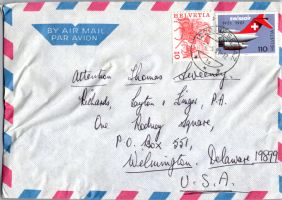 BY AIR MAIL
PAR AVION
HELVETIA
swissair
110
Attention Thomas Sweeney.
Richards, Layton & Finger, P.A.
One Rodney Square,
P.O. Box 551,
Wilmington. Delaware 19899
U.S.A.